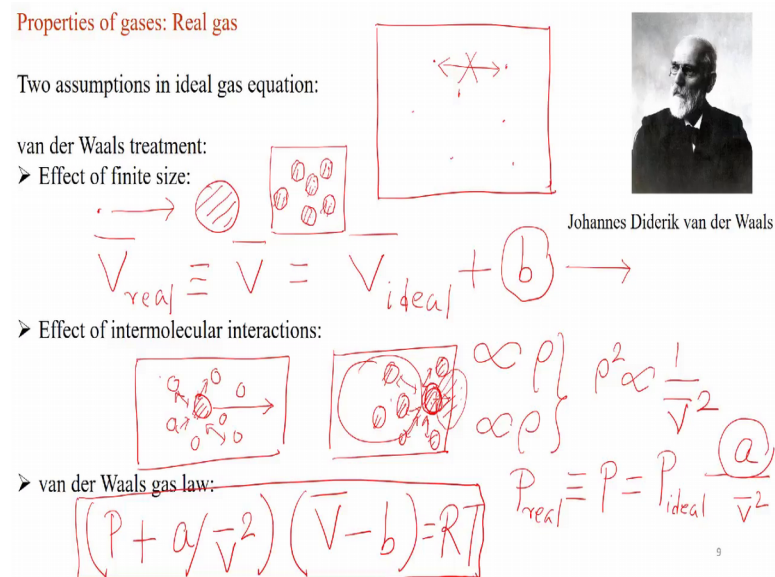 Properties of gases: Real gas
Two assumptions in ideal gas equation:
van der Waals treatment:
➤ Effect of finite size:
Johannes Diderik van der Waals
V̄real ≡ V̄ = V̄ideal + b →
➤ Effect of intermolecular interactions:
∝ ρ } ρ² ∝ 1/V̄²
∝ ρ }
Preal ≡ P = Pideal – a/V̄²
➤ van der Waals gas law:
(P + a/V̄²) (V̄ – b) = RT
9